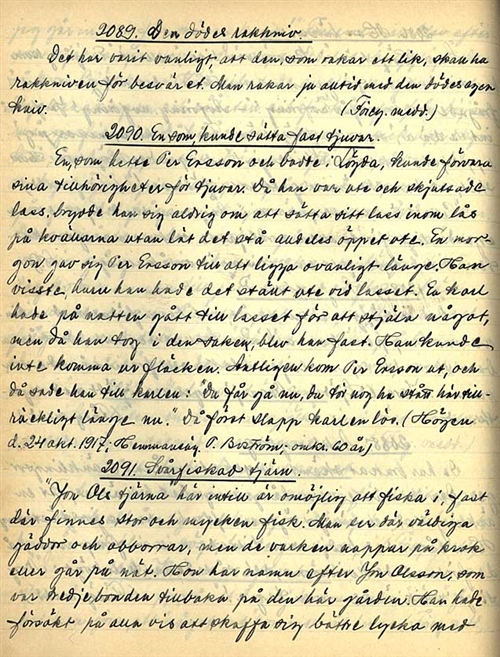 2089. Den dödes rakkniv.
Det har varit vanligt, att den, som rakar ett lik, skall ha
rakkniven för besväret. Man rakar ju alltid med den dödes egen
kniv. (Föreg. medd.)
2090. En som kunde sätta fast tjuvar.
En, som hette Per Ersson och bodde i Löfda, kunde förvara
sina tillhörigheter för tjuvar. Då han var ute och skjutsade
lass, brydde han sig aldrig om att sätta sitt lass inom lås
på kvällarna utan lät det stå alldeles öppet ute. En mor-
gon gav sig Per Ersson till att ligga ovanligt länge. Han
visste, huru han hade det ställt ute vid lasset. En karl
hade på natten gått till lasset för att stjäla något,
men då han tog i den saken, blev han fast. Han kunde
inte komma ur fläcken. Äntligen kom Per Ersson ut, och
då sade han till karlen: "Du får gå nu, du tör nog ha stått här till-
räckligt länge nu." Då först slapp karlen lös. (Högen
d. 24 okt. 1917; Hemmansäg. P. Boström; omkr. 60 år)
2091. Svårfiskad tjärn
"Jon Ols tjärna här intill är omöjlig att fiska i, fast
där finnes stor och mycken fisk. Man ser där väldiga
gäddor och abborrar, men de varken nappar på krok
eller går på nät. Hon har namn efter Jon Olsson, som
var tredje bonden tillbaka på den här gården. Han hade
försökt på alla vis att skaffa sig bättre lycka med